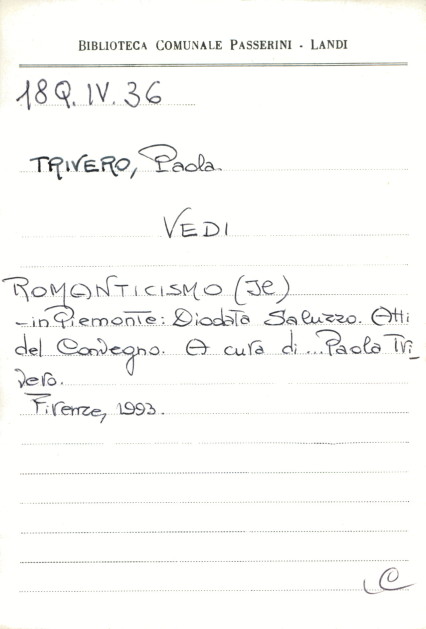 BIBLIOTECA COMUNALE PASSERINI - LANDI
18Q.IV.36
TRIVERO, Paola.
VEDI
ROMANTICISMO (Il)
- in Piemonte: Diodata Saluzzo. Atti
del Convegno. A cura di ... Paola Tri_
vero.
Firenze, 1993.